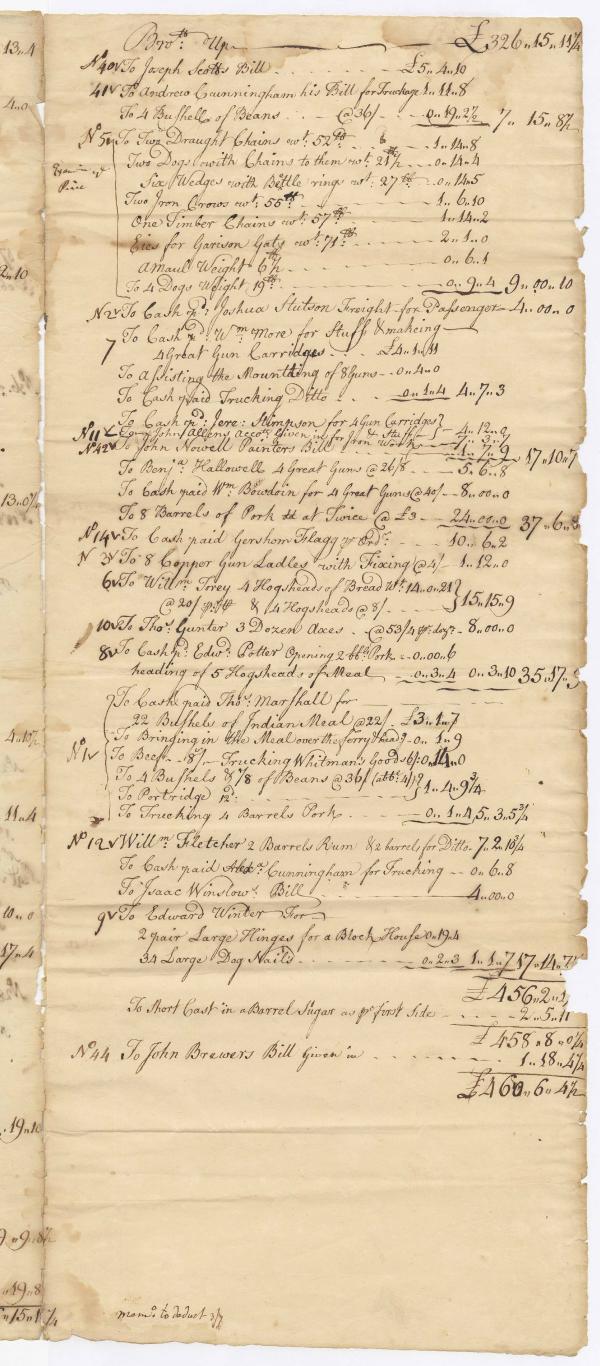 Bro.ts Up £326"15"11¼
No 40 v To Joseph Scotts Bill £5"4"10
41 v To Andrew Cunningham his Bill for Truckage 1"11"8
To 4 Bushells of Beans @36/ 0"19"2½ 7"15"8½
No 5 v To Two Draught Chains wt. 52 lb 1"14"8
Two Dogs with Chains to them wt. 21½ lb 0"14"4
Price
Six Wedges with Bittle rings wt: 27 lb 0"14"5
Two Iron Crows wt: 55 lb 1"6"10
One Timber Chains wt: 57 lb 1"14"2
Eies for Garison Gats wt: 71 lb 2"1"0
a Maul Weight 6½ 0"6"1
To 4 Dogs Weight 19 lb 0"9"4 9"00"10
N 2 v To Cash pd. Joshua Stutson Freight for Passenger 4"00"0
7 To Cash pd: Wm More for Stuff & makeing
4 Great Gun Carridges £4"1"11
To Assisting the Mounthing of 8 Guns 0"4"0
To Cash paid Trucking Ditto 0"1"4 4"7"3
To Cash pd: Jere: Stimpson for 4 Gun Carridges } 4"12"0
No 11 v John Allens Acco.t Given in for Iron work & Stuff 7"3"7
No 42 v To John Nowell Painters Bill 1"7"9 17"10"7
To Benja. Hallowell 4 Great Guns @26/8 5"6"8
To Cash paid Wm Bowdoin for 4 Great Guns @40/ 8"00"0
To 8 Barrels of Pork at Twice @ £3 24"00"0 37"6"8
No 14 v To Cash paid Gershom Flagg pr Ord.r 10"6"2
N 3 v To 8 Copper Gun Ladles with Fixing @4/ 1"12"0
6 v To Willm Torey 4 Hogsheads of Bread Wt. 14"0"21 }
@20/ & 4 Hogsheads @8/ } 15"15"9
10 v To Thos. Gunter 3 Dozen Axes @53/4 pr. doz.n 8"00"0
8 v To Cash pd: Edwd. Potter Opening 2 bbs Pork 0"00"6
heading of 5 Hogsheads of Meal 0"3"4 0"3"10 35"17"9
To Cash paid Thos. Marshall for
22 Bushels of Indian Meal @22/ £3"1"7
To Bringing in the Meal over the ferry & head 0"1"9
No 1 v To Beef 8/ Trucking Whitmans Goods 6/ 0"14"0
To 4 Bushels & ⅞ of Beans @36/ (abt: 4/) }
To Portridge 12d } 1"4"9¾
To Trucking 4 Barrels Pork 0"1"4 5"3"5¾
No 12 v Willm Fletcher 2 Barrels Rum & 2 barrels for Ditto 7"2"10¾
To Cash paid Cunningham for Trucking 0"6"8
To Isaac Winslows. Bill 4"00"0
9 v To Edward Winter For
2 pair Large Hinges for a Block House 0"19"4
34 Large Dog Nails 0"2"3 1"1"7 17"14"7
£456"2"1
To Short Cast in a Barrel Sugar as pr first side 2"5"11
£458"8"0¼
No 44 To John Brewers Bill Given in 1"18"4¼
£460"6"4½
mem.o to deduct 3/7
13"4
4"0
2"10
13"0¼
4"10½
11"4
10"0
17"4
19"10
9"9"8½
"19"8
"15"11¼